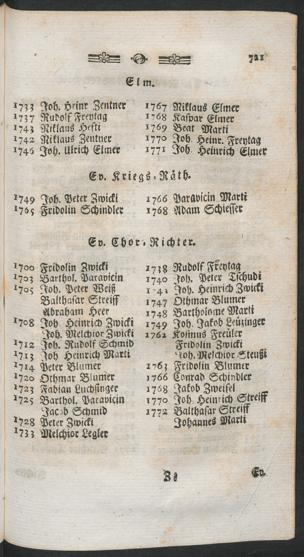 721
Elm.
1733 Joh. Heinr Zentner
1737 Rudolf Freytag
1743 Niklaus Hefti
1742 Niklaus Zentner
1746 Joh. Ulrich Elmer
1767 Niklaus Elmer
1768 Kaspar Elmer
1769 Beat Marti
1770 Joh. Heinr. Freytag
1771 Joh. Heinrich Elmer
Ev. Kriegs-Räth.
1749 Joh. Peter Zwicki
1765 Fridolin Schindler
1766 Paravicin Marti
1768 Adam Schiesser
Ev. Chor-Richter.
1700 Fridolin Zwicki
1703 Barthol. Paravicin
1705 Joh. Peter Weiß
Balthasar Streiff
Abraham Heer
1708 Joh. Heinrich Zwicki
Joh. Melchior Zwicki
1712 Joh. Rudolf Schmid
1713 Joh Heinrich Marti
1714 Peter Blumer
1720 Othmar Blumer
1723 Fabian Luchsinger
1725 Barthol. Paravicin
Jacob Schmid
1728 Peter Zwicki
1733 Melchior Legler
1738 Rudolf Freytag
1740 Joh. Peter Tschudi
1741 Joh. Heinrich Zwicki
1747 Othmar Blumer
1748 Bartholome Marti
1749 Joh. Jakob Leuzinger
1762 Kosmus Freuler
Fridolin Zwicki
Joh. Melchior Steußi
1763 Fridolin Blumer
1766 Conrad Schindler
1768 Jakob Zweifel
1770 Joh. Heinrich Streiff
1772 Balthasar Streiff
Johannes Marti
Ev.